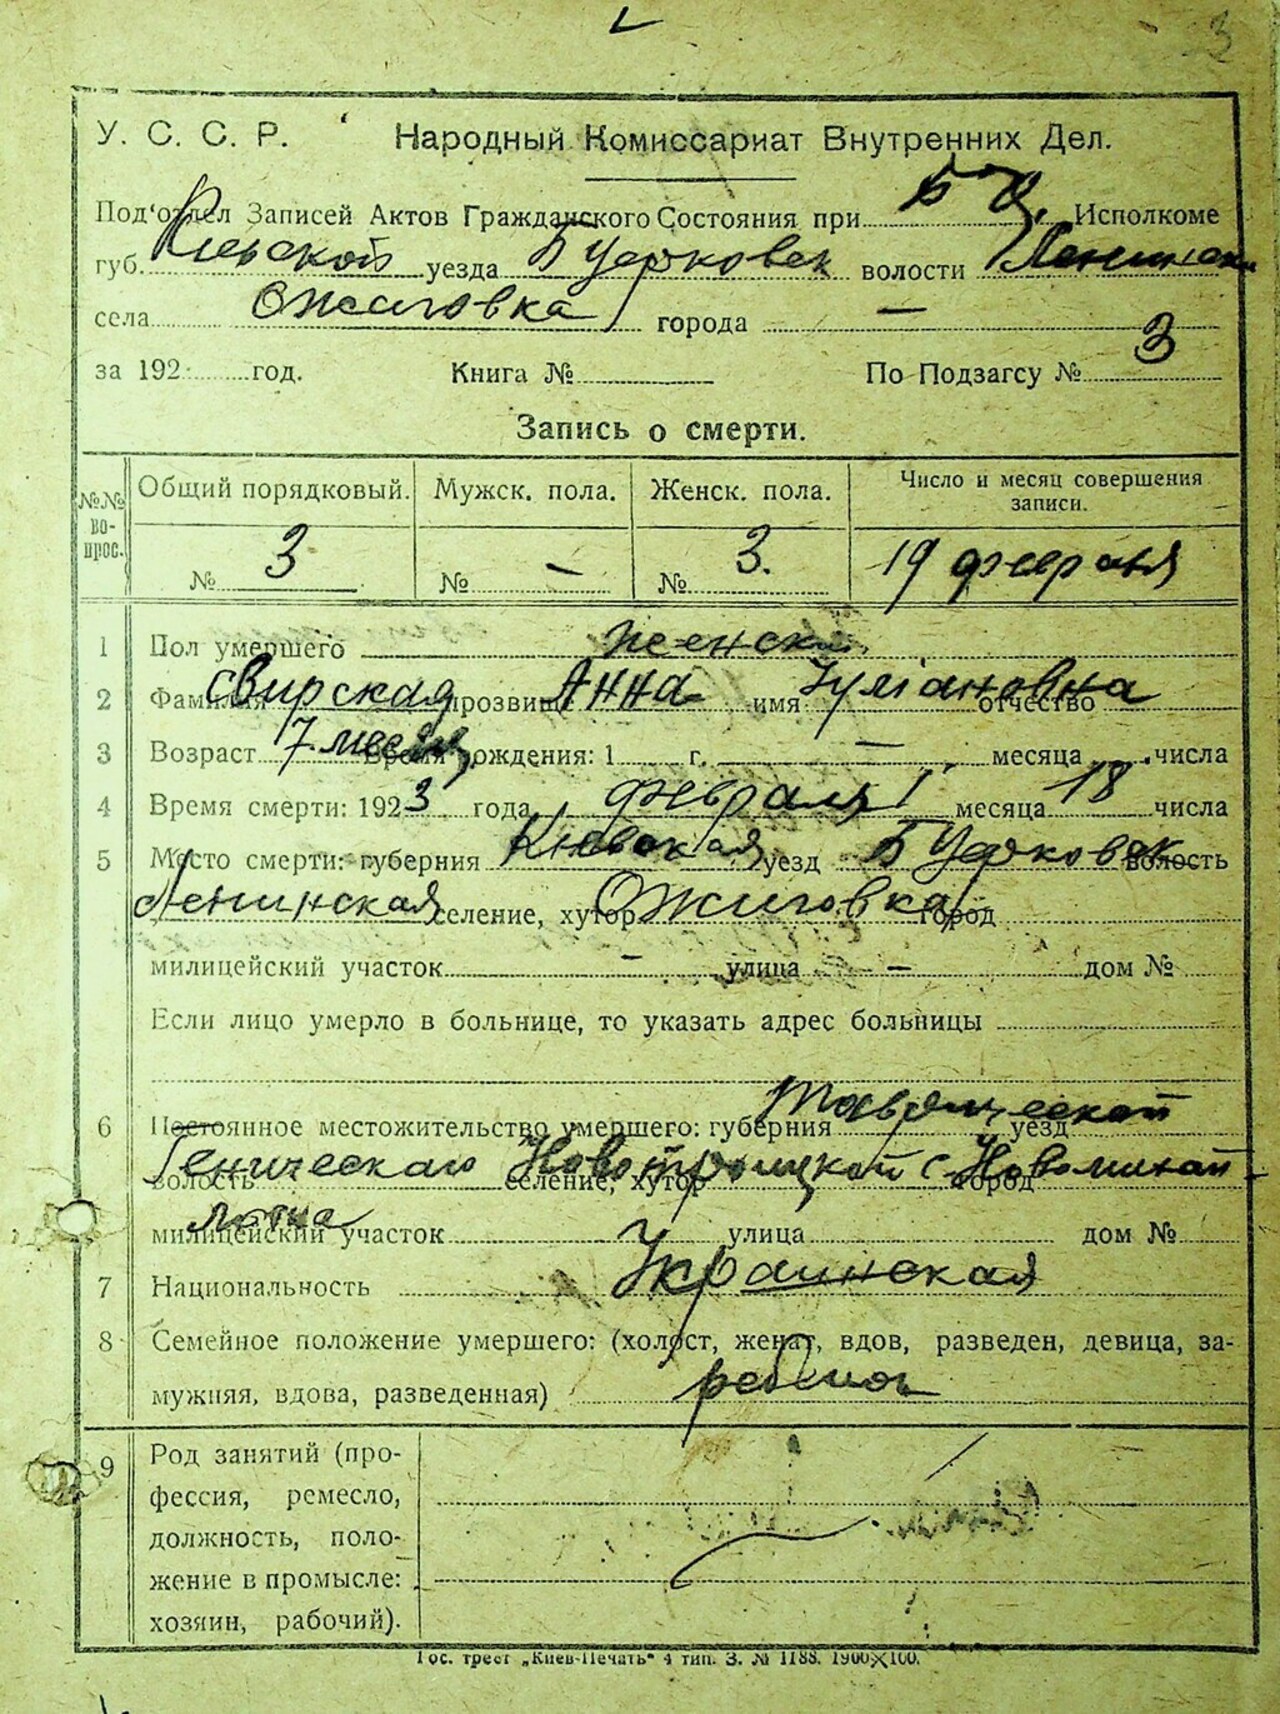 3
У. С. С. Р. Народный Комиссариат Внутренних Дел.
Под'отдел Записей Актов Гражданского Состояния при Б Ц. Исполкоме
губ. Киевской уезда Б Церковск волости Ленинск
села Ожиговка города —
за 192 год. Книга № По Подзагсу № 3
Запись о смерти.
№№ вопрос. Общий порядковый. Мужск. пола. Женск. пола. Число и месяц совершения записи.
№ 3 № — № 3. 19 февраля
1 Пол умершего женск
2 Фамилия Свирская прозвище Анна имя отчество
3 Возраст 7 месяц Время рождения: 1 г. — месяца числа
4 Время смерти: 1923 года февраля месяца 18 числа
5 Место смерти: губерния Киевская уезд Б Церковск волость
Ленинская селение, хутор Ожиговка город
милицейский участок — улица — дом №
Если лицо умерло в больнице, то указать адрес больницы
6 Постоянное местожительство умершего: губерния Таврической уезд
волость Генической селение, хутор Новотроицкой с город
милицейский участок улица дом №
7 Национальность Украинская
8 Семейное положение умершего: (холост, женат, вдов, разведен, девица, за-
мужняя, вдова, разведенная) ребенок
9 Род занятий (про-
фессия, ремесло,
должность, поло-
жение в промысле:
хозяин, рабочий).
Гос. трест „Киев-Печать" 4 тип. З. № 1188. 1900×100.